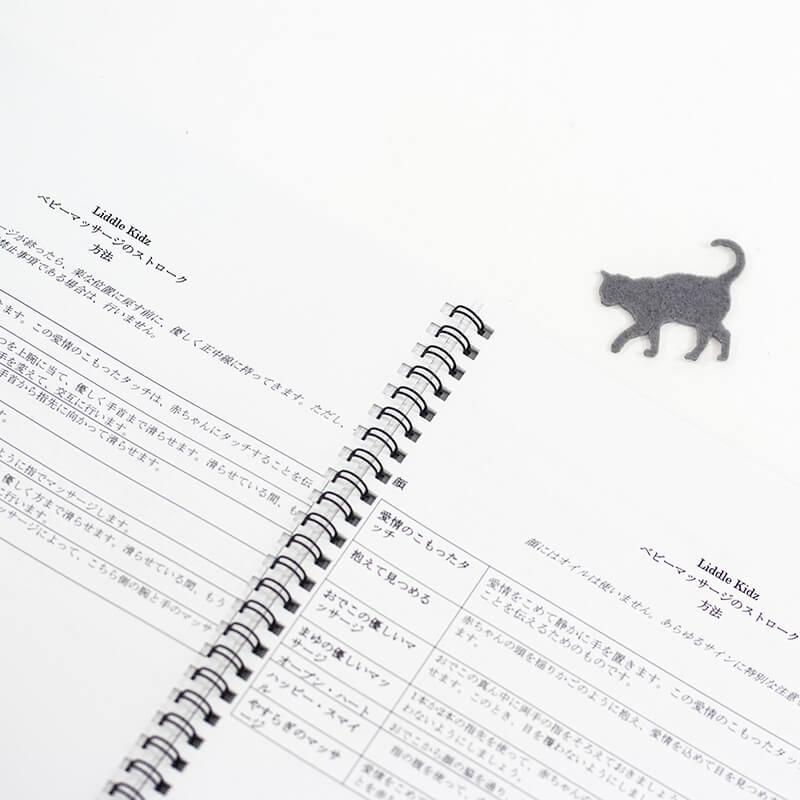 Liddle Kidz
ベビーマッサージのストローク
方法
ージが終ったら、楽な位置に戻す前に、優しく正中線に持ってきます。ただし、
禁止事項である場合は、行いません。
ます。この愛情のこもったタッチは、赤ちゃんにタッチすることを伝
つを上腕に当て、優しく手首まで滑らせます。滑らせている間、も
手を変えて、交互に行います。
手首から指先に向かって滑らせます。
す。
ように指でマッサージします。
優しく方まで滑らせます。滑らせている間、もう
に行います。
ッサージによって、こちら側の腕と手のマッサ
Liddle Kidz
ベビーマッサージのストローク
方法
顔にはオイルは使いません。あらゆるサインに特別な注意
顔
愛情のこもったタ
ッチ
愛情をこめて静かに手を置きます。この愛情のこもったタッ
ことを伝えるためのものです。
抱えて見つめる
赤ちゃんの頭を揺りかごのように抱え、愛情を込めて目を見つめ
ます。
おでこの優しいマ
ッサージ
おでこの真ん中に両手の指をそろえておきましょう
せます。このとき、目を覆わないようにしま
まゆの優しいマッ
サージ
1本か2本の指先を使って、赤ちゃんの
わないようにしましょう。
オープン・ハート
おでこから顔の脇を通り
ハッピー・スマイ
ル
指の腹を使って、
やすらぎのマッサ
ージ
愛情をこめて
とを赤